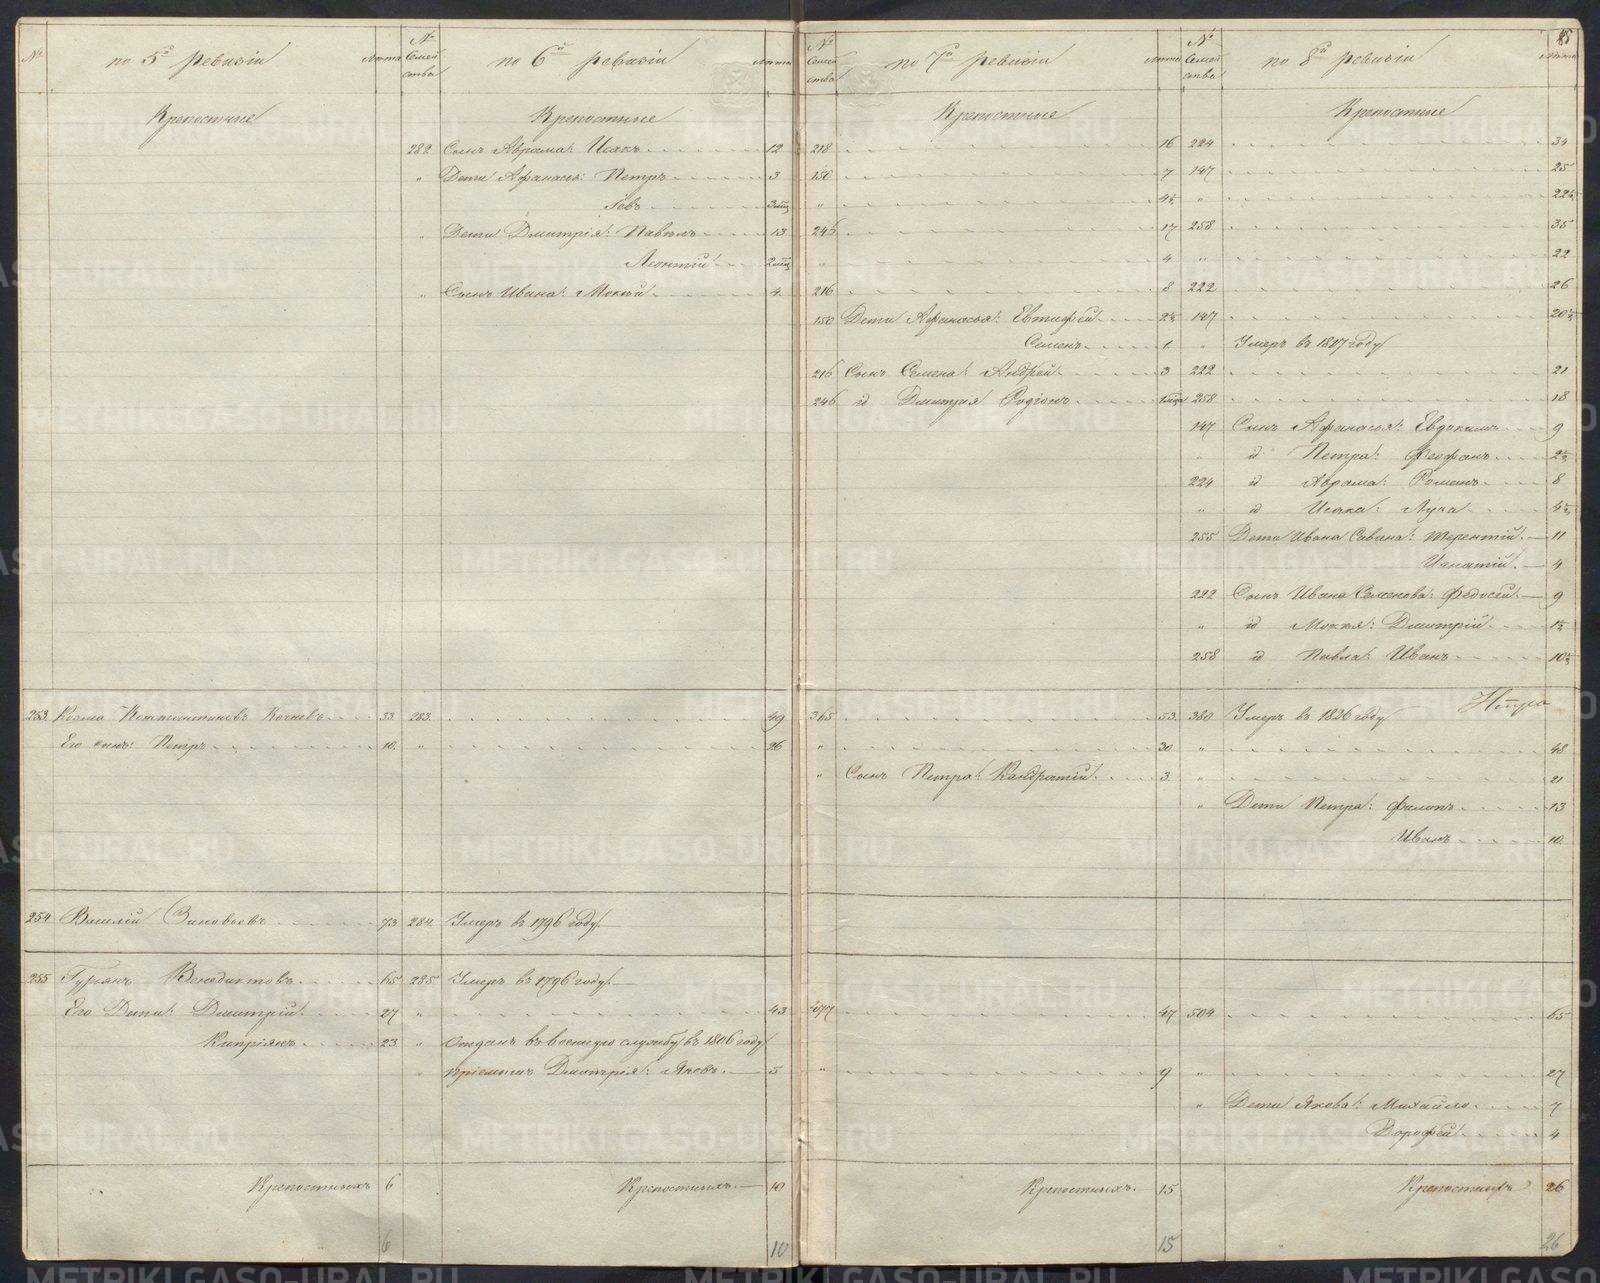 № по 5й ревизіи лѣта № Семейства по 6й ревизіи лѣта № Семейства по 7й ревизіи лѣта № Семейства по 8й ревизіи лѣта
Крепостные Крепостные Крепостные Крепостные
282 Сынъ Аврама: Исакъ 12 218 16 224 34
" Дети Афанасья: Петръ 3 150 7 147 25
Левъ " 4½ " 22½
" Дети Дмитрія: Павелъ 13 246 17 258 35
Леонтій " 4 " 22
" Сынъ Ивана: Мокей 4 216 8 222 26
150 Дети Афанасья: Евтифей 2½ 147 20½
Семенъ 1 " Умеръ въ 1817 году
216 Сынъ Семена: Андрей 3 222 21
246 id Дмитрія Родіонъ 258 18
147 Сынъ Афанасья: Евдокимъ 9
" id Петра: Феофанъ 2½
224 id Аврама: Романъ 8
" id Исака: Лука 4½
255 Дети Ивана Савина: Терентій 11
Игнатій 4
222 Сынъ Ивана Семенова: Федосей 9
" id Мокея: Дмитрій 1½
258 id Павла: Иванъ 10½
253 Козма Константиновъ Кочневъ 33 283 49 365 53 380 Умеръ въ 1826 году
Его сынъ: Петръ 10 " 26 " 30 " 48
" Сынъ Петра: Кандратій 3 " 21
" Дети Петра: Филипъ 13
Иванъ 10
254 Василій Зиновьевъ 73 284 Умеръ въ 1796 году
255 Гурьянъ Венедиктовъ 65 285 Умеръ въ 1796 году
Его Дети: Дмитрій 27 " 43 477 47 504 65
Кипріянъ 23 " Отданъ въ военную службу въ 1806 году
" пріемышъ Дмитрія: Яковъ 5 " 9 " 27
" Дети Якова: Михайло 7
Дорофей 4
Крепостныхъ 6 Крепостныхъ 10 Крепостныхъ 15 Крепостныхъ 26
6 10 15 26
METRIKI.GASO-URAL.RU